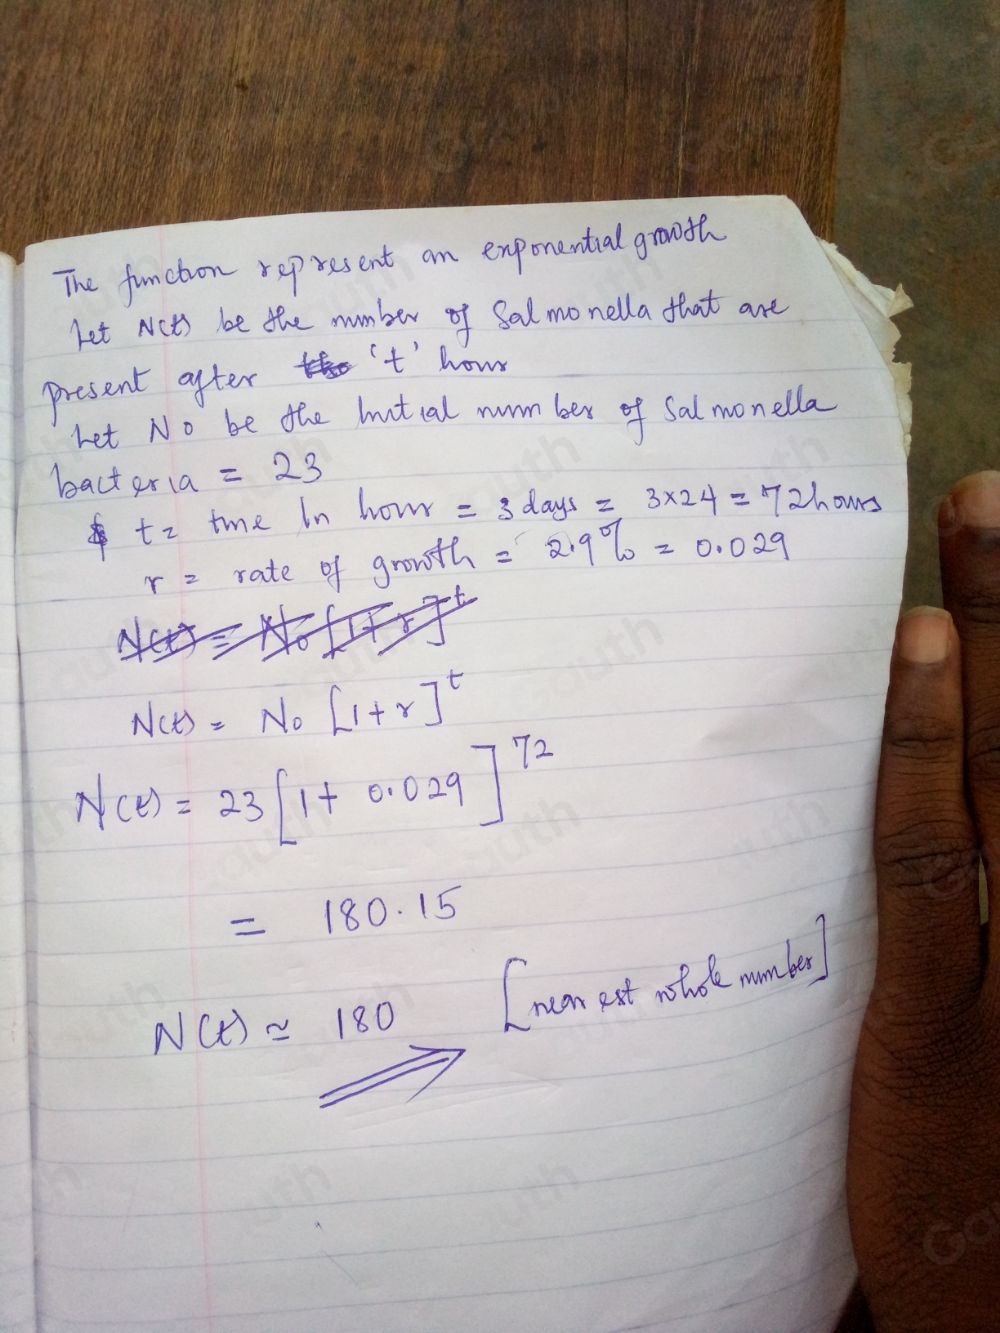 The function represent an exponential growth
Let N(t) be the number of Salmonella that are
present after 't' hour
Let No be the Initial number of Salmonella
bacteria = 23
t = time In hour = 3 days = 3×24 = 72hours
r = rate of growth = 2.9% = 0.029
N(t) = No [1+r]^t
N(t) = No [1+r]^t
N(t) = 23 [1+ 0.029]^72
= 180.15
N(t) ≃ 180 [nearest whole number]